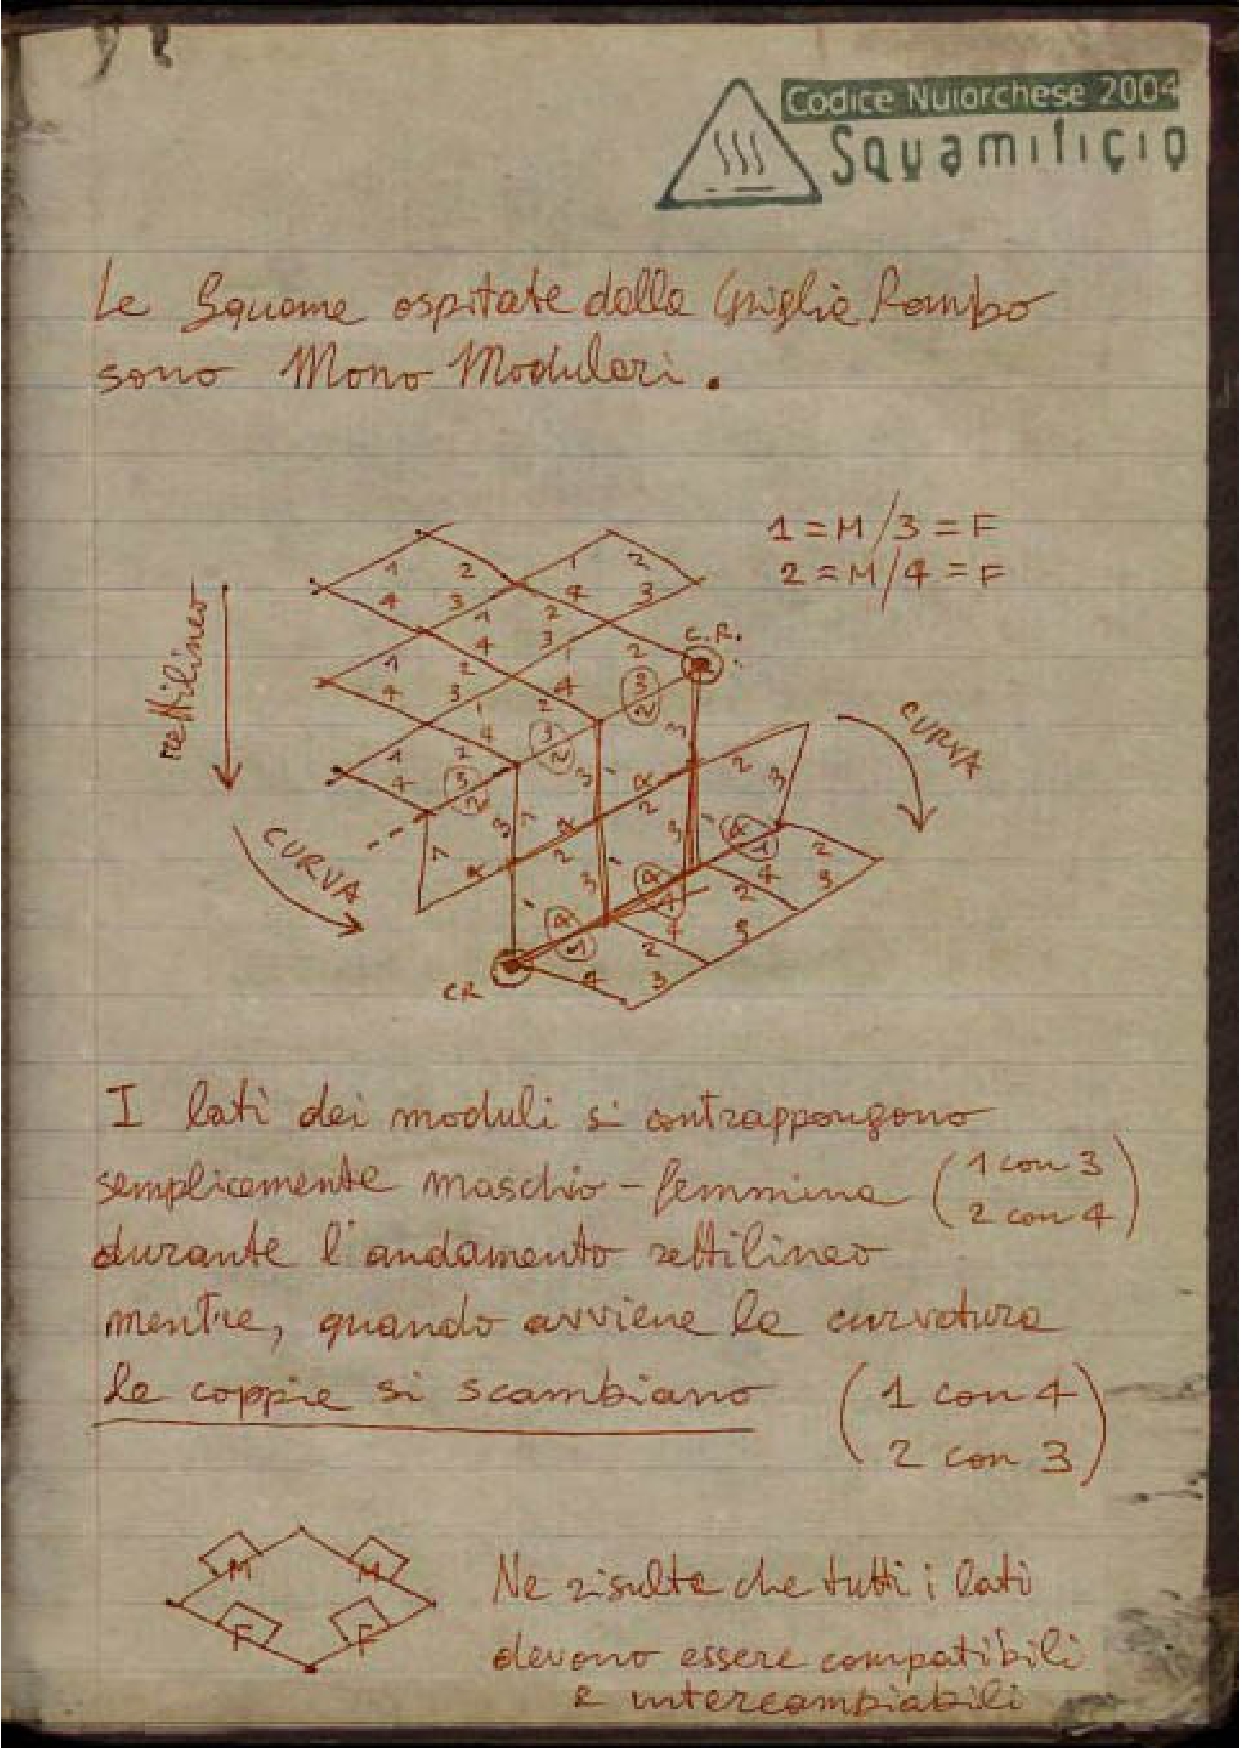 Codice Nuiarchese 2004
Squamificio
Le Squame ospitate dalla Griglia Rombo
sono Mono Modulari.
1 = M / 3 = F
2 = M / 4 = F
C.R.
rettilineo
CURVA
CURVA
CR
1 2 1 2
4 3 4 3
I lati dei moduli si contrappongono
semplicemente maschio - femmina (1 con 3
2 con 4)
durante l'andamento rettilineo
mentre, quando avviene la curvatura
le coppie si scambiano (1 con 4
2 con 3)
M M
F F
Ne risulta che tutti i lati
devono essere compatibili
e intercambiabili